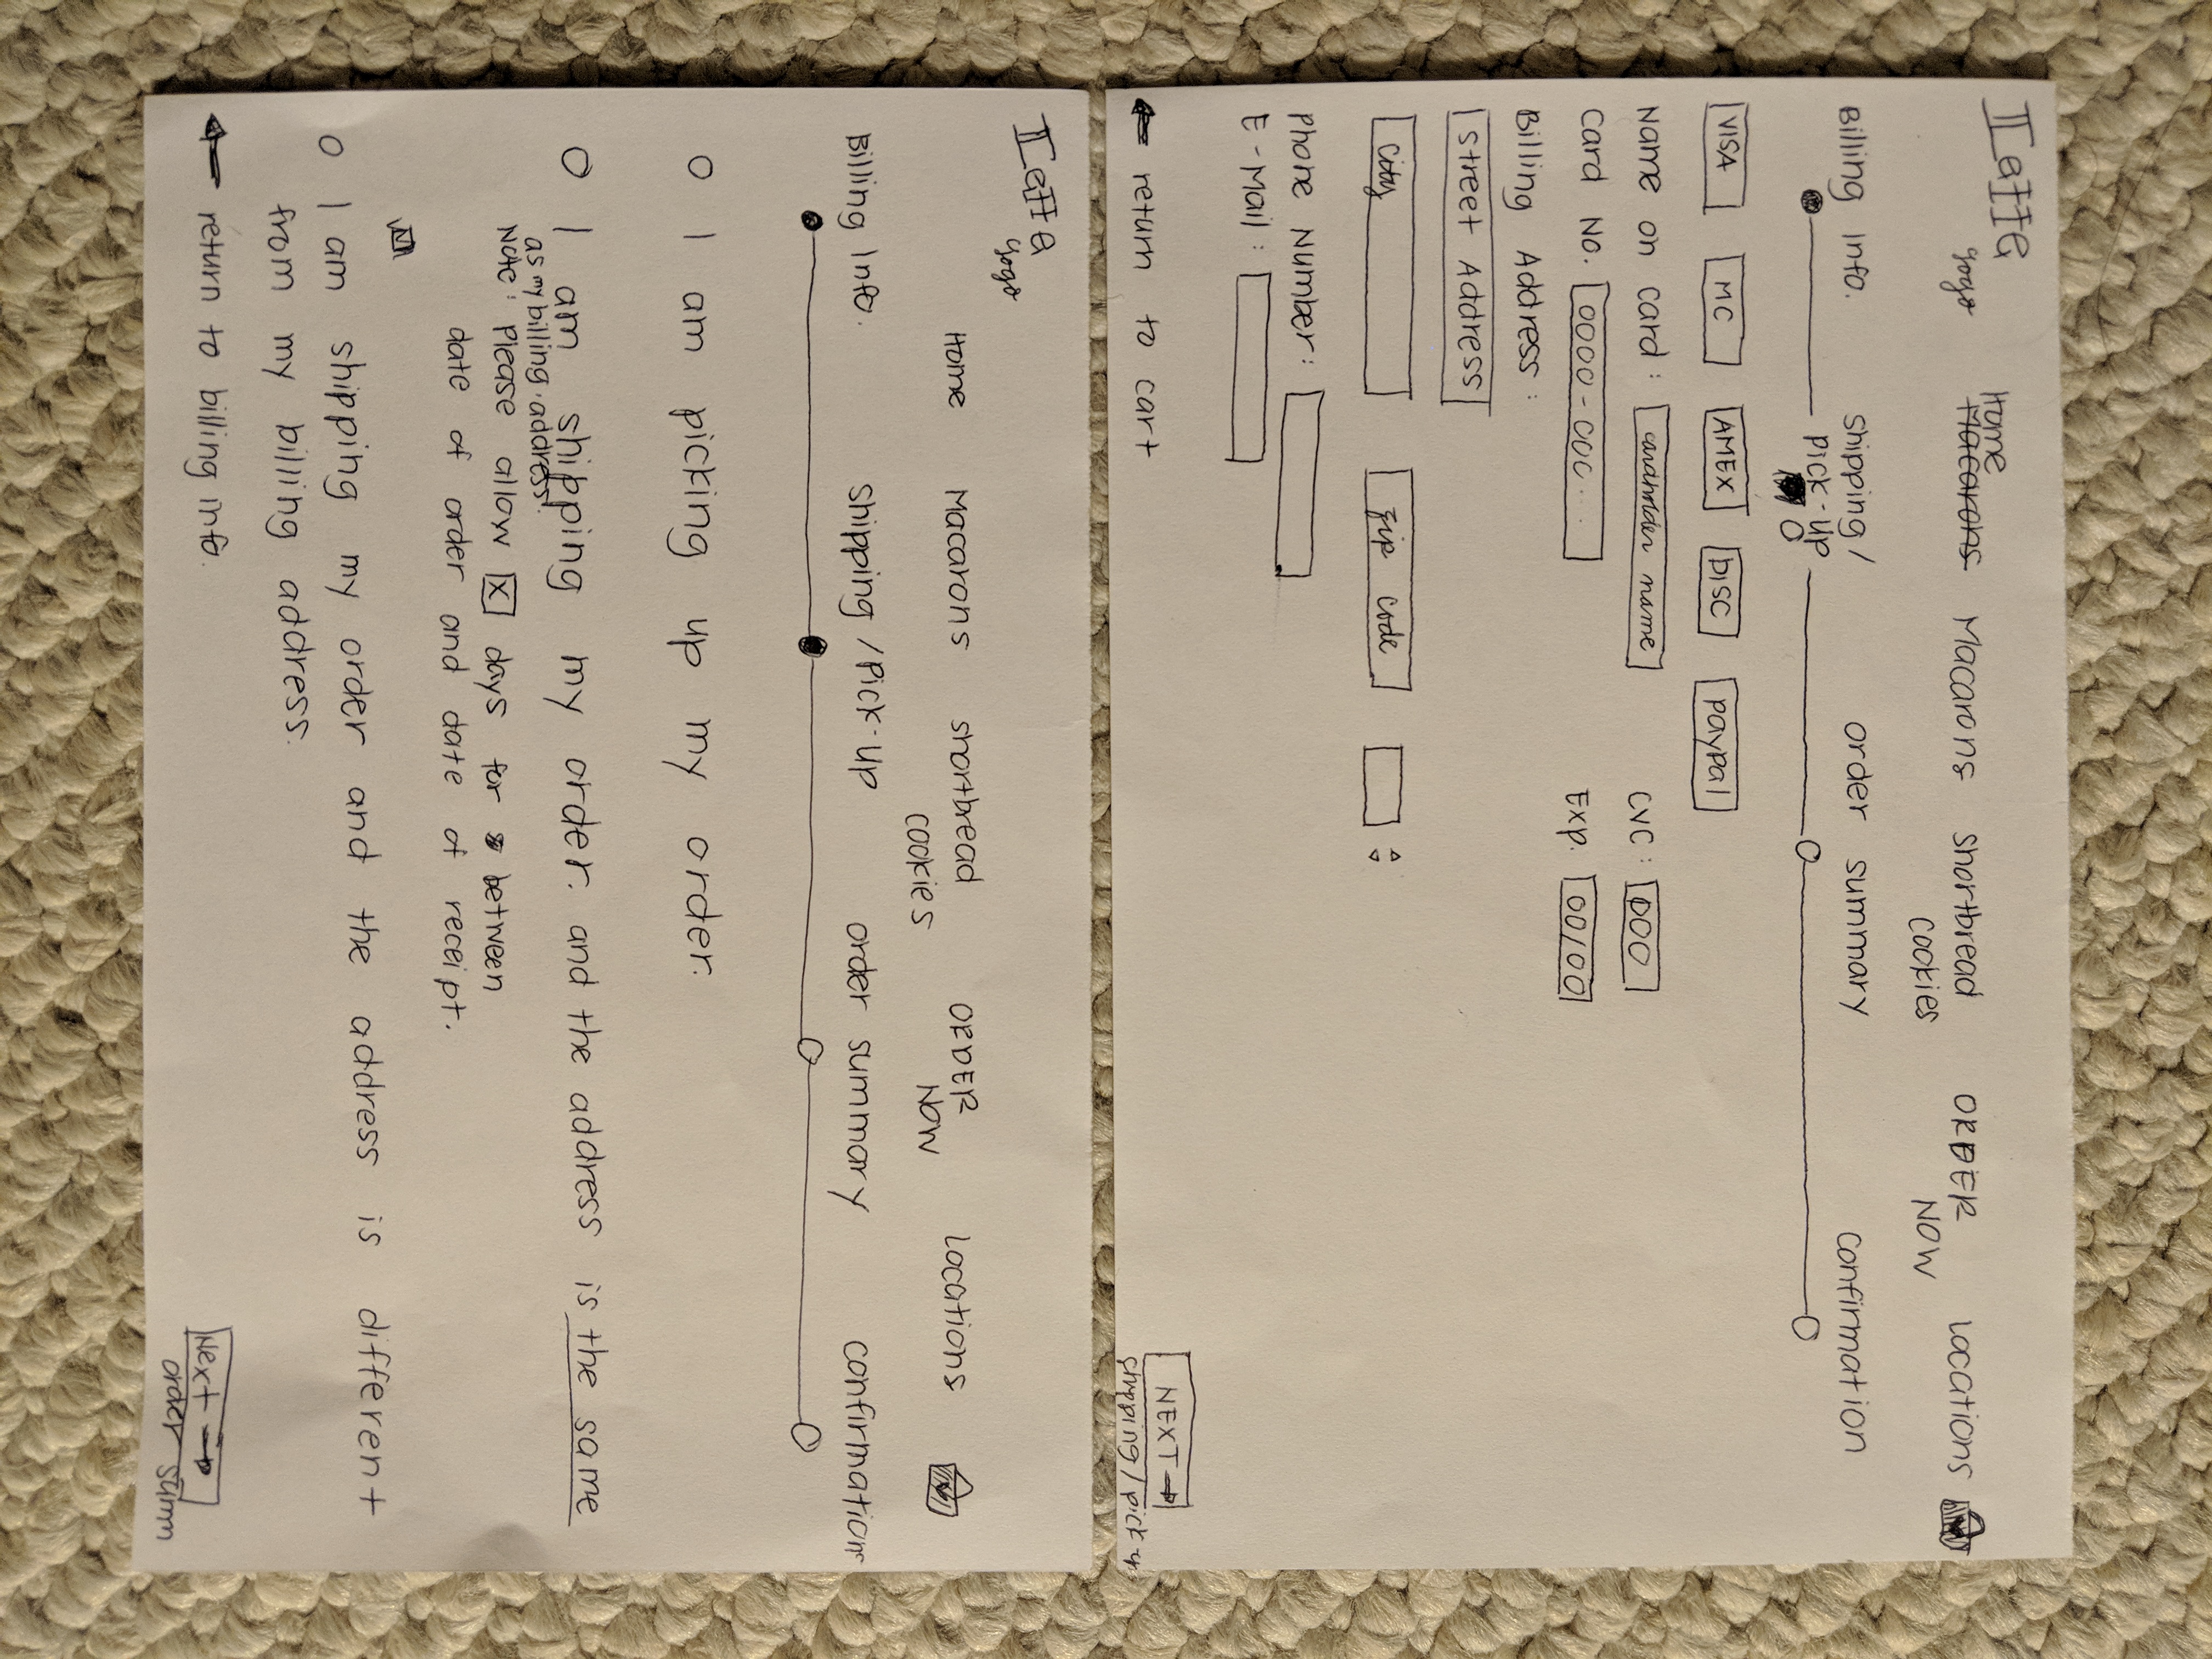 Home
Macarons Macarons shortbread cookies ORDER NOW locations
Billing Info. Shipping/ Pick-Up order summary confirmation
VISA MC AMEX DISC paypal
Name on card: cardholder name CVC: 000
Card No. 0000-000... Exp. 00/00
Billing Address:
Street Address
City zip code
Phone Number:
E-Mail:
return to cart
NEXT →
shipping/pick-u
Home Macarons shortbread cookies ORDER NOW locations
Billing Info. Shipping/Pick-Up order summary confirmation
O I am picking up my order.
O I am shipping my order. and the address is the same
as my billing address.
Note: please allow X days for between
date of order and date of receipt.
O I am shipping my order and the address is different
from my billing address.
return to billing info.
Next →
order summ